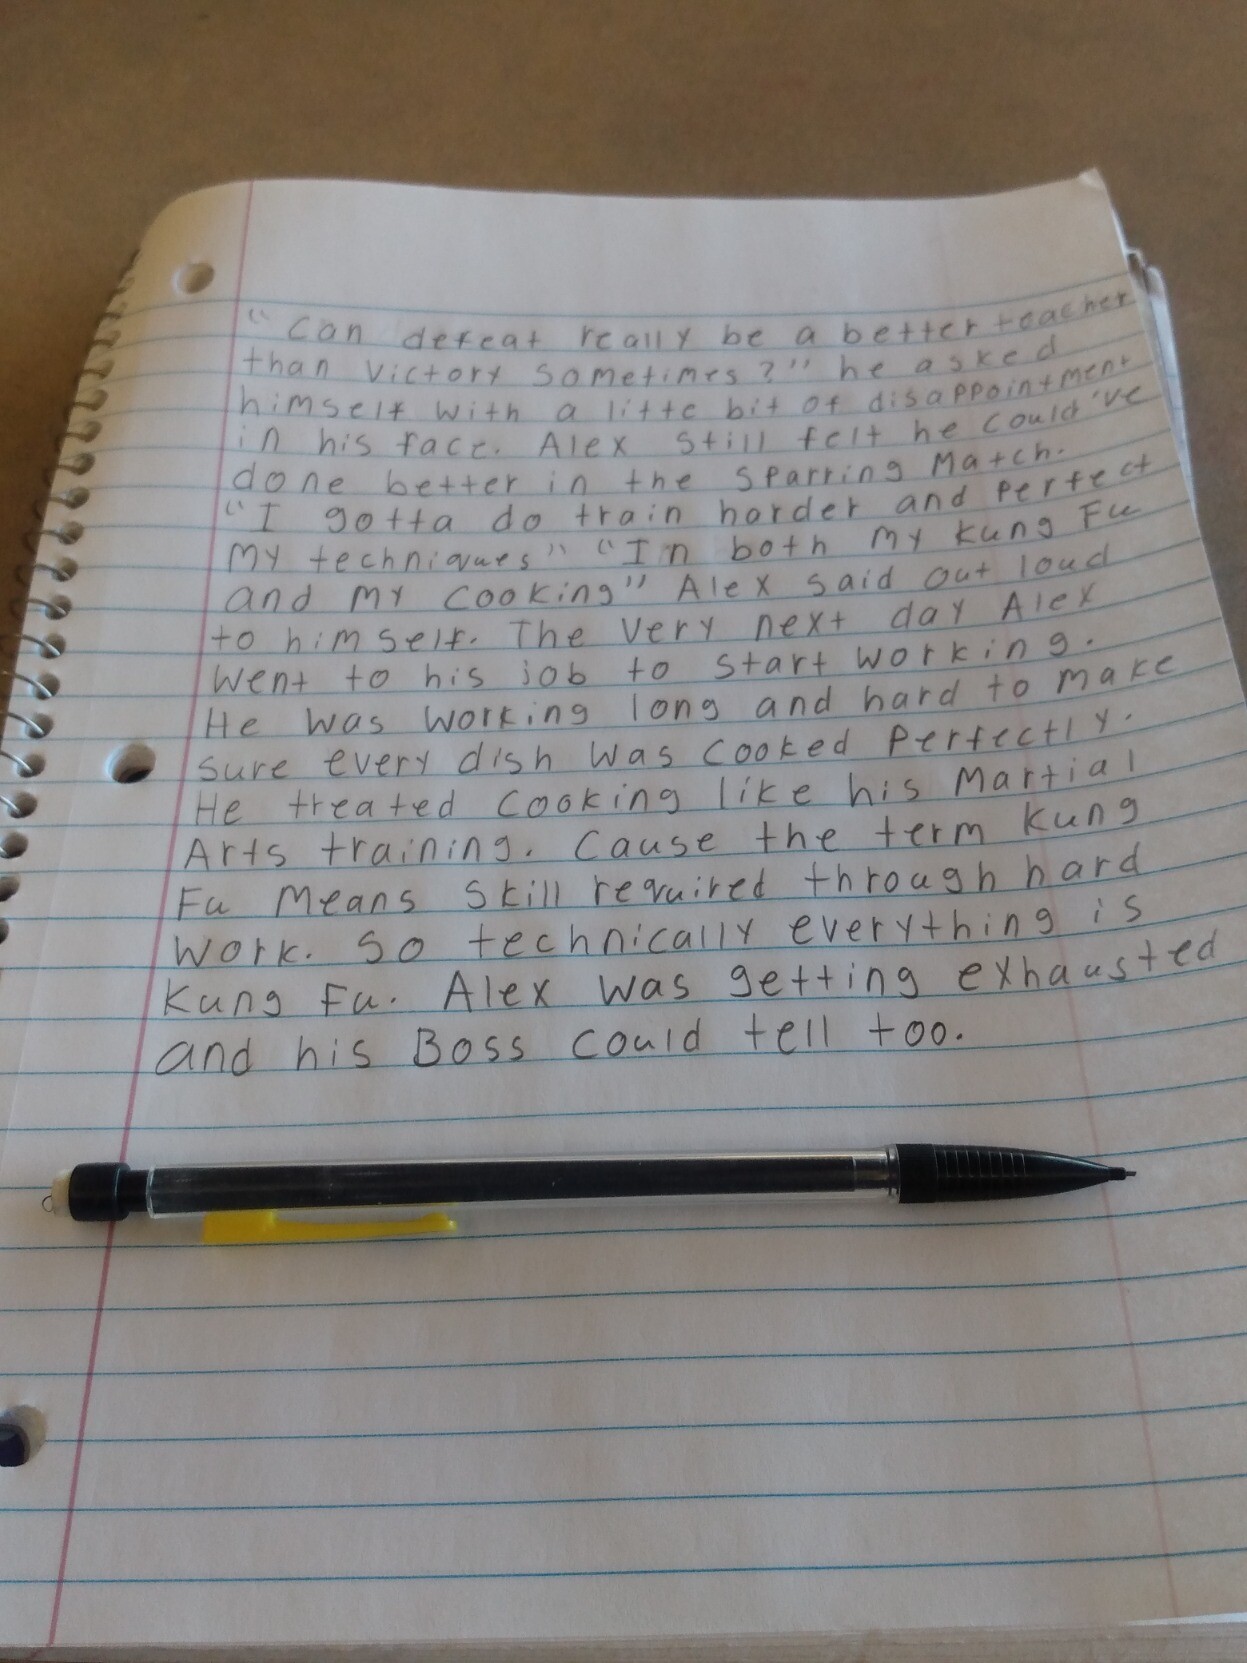 "Can defeat really be a better teacher
than victory sometimes?" he asked
himself with a litte bit of disappointment
in his face. Alex still felt he could've
done better in the sparring Match.
"I gotta do train harder and perfect
My techniques" "In both my Kung Fu
and my cooking" Alex said out loud
to himself. The very next day Alex
went to his job to start working.
He was working long and hard to make
sure every dish was cooked perfectly.
He treated cooking like his Martial
Arts training. Cause the term Kung
Fu Means skill required through hard
work. So technically everything is
Kung Fu. Alex was getting exhausted
and his Boss could tell too.